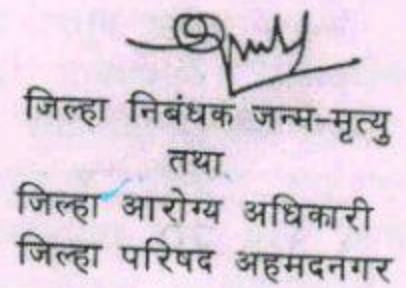 जिल्हा निबंधक जन्म-मृत्यु
तथा
जिल्हा आरोग्य अधिकारी
जिल्हा परिषद अहमदनगर